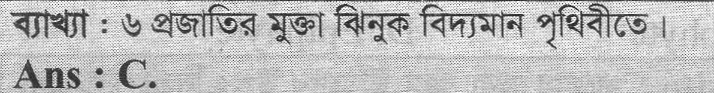 ব্যাখ্যা : ৬ প্রজাতির মুক্তা ঝিনুক বিদ্যমান পৃথিবীতে ।
Ans : C.